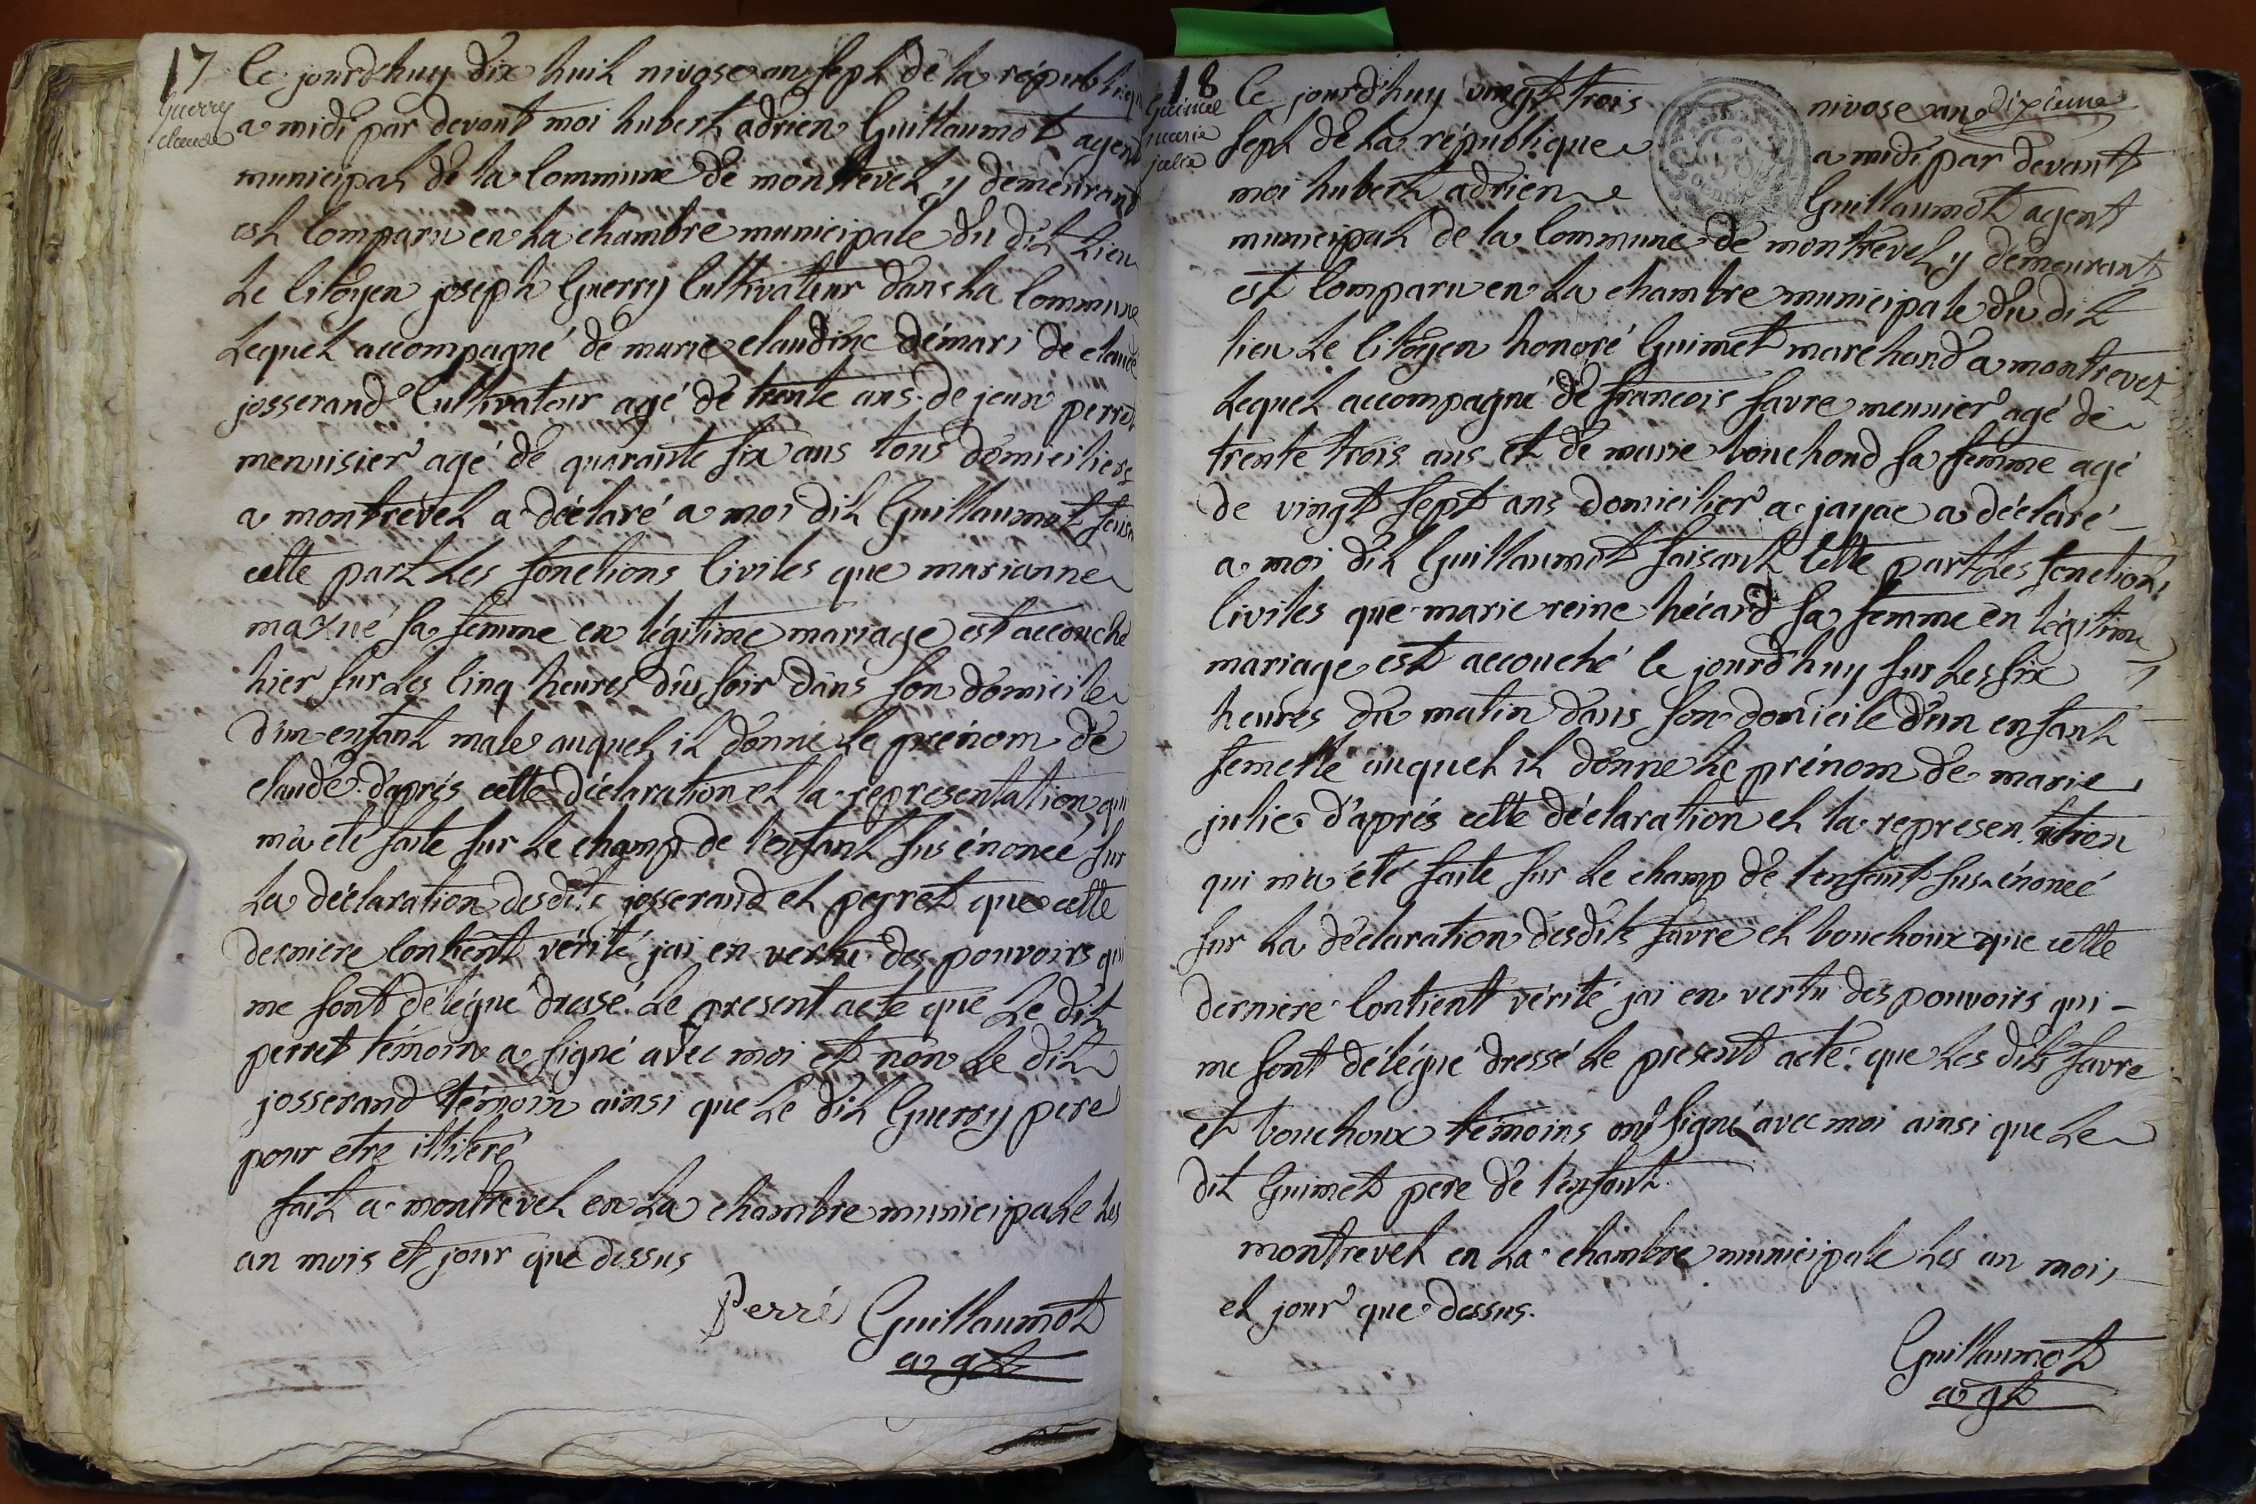 17
Guerry
claude
Ce jourd'huy dix huit nivose an sept de la républiqu
a midi par devant moi hubert adrien Guillaumot agent
municipal de la Commune de montrevel y demeurant
est Comparu en la chambre municipale du dit lieu
le Citoyen joseph Guerry Cultivateur dans la Commune
lequel accompagné de marie claudine démari de claude
josserand Cultivateur agé de trente ans de jean perret
menuisier agé de quarante six ans tous domiciliers
a montrevel a déclaré a moi dit Guillaumot
cette part les fonctions Civiles que marianne
sa femme en légitime mariage est accouché
hier sur les Cinq heures du soir dans son domicile
d'un enfant male auquel il donne le prénom de
claude d'aprés cette déclaration et la representation qui
m'a été faite sur le champ de l'enfant sus énoncé sur
la déclaration desdits josserand et perret que cette
derniere Contient vérité j'ai en vertu des pouvoirs qui
me sont délégué dressé le present acte que le dit
perret témoin a signé avec moi et non le dit
josserand témoin ainsi que le dit Guerry pere
pour etre illitéré
fait a montrevel en la chambre municipale les
an mois et jour que dessus
Perré Guillaumot
agt
18
Guimet
marie
julie
Ce jourd'huy vingt trois nivose an dixieme
sept de la république a midi par devant
moi hubert adrien Guillaumot agent
municipal de la Commune de montrevel y demeurant
est Comparu en la chambre municipale du dit
lieu le Citoyen honoré Guimet marchand a montrevel
lequel accompagné de francois favre meunier agé de
trente trois ans et de marie bouchond sa femme agé
de vingt sept ans domicilier a jayac a déclaré
a moi dit Guillaumot faisant Cette part les fonctions
Civiles que marie reine hécard sa femme en légitime
mariage est accouché le jourd'huy sur les six
heures du matin dans son domicile d'un enfant
femelle auquel il donne le prénom de marie
julie d'aprés cette déclaration et la representation
qui m'a été faite sur le champ de l'enfant sus énoncé
sur la déclaration desdits favre et bouchoux que cette
derniere Contient vérité j'ai en vertu des pouvoirs qui
me sont délégué dressé le present acte que les dits favre
et bouchoux témoins ont signé avec moi ainsi que le
dit Guimet pere de l'enfant.
montrevel en la chambre municipale les an mois
et jour que dessus.
Guillaumot
agt